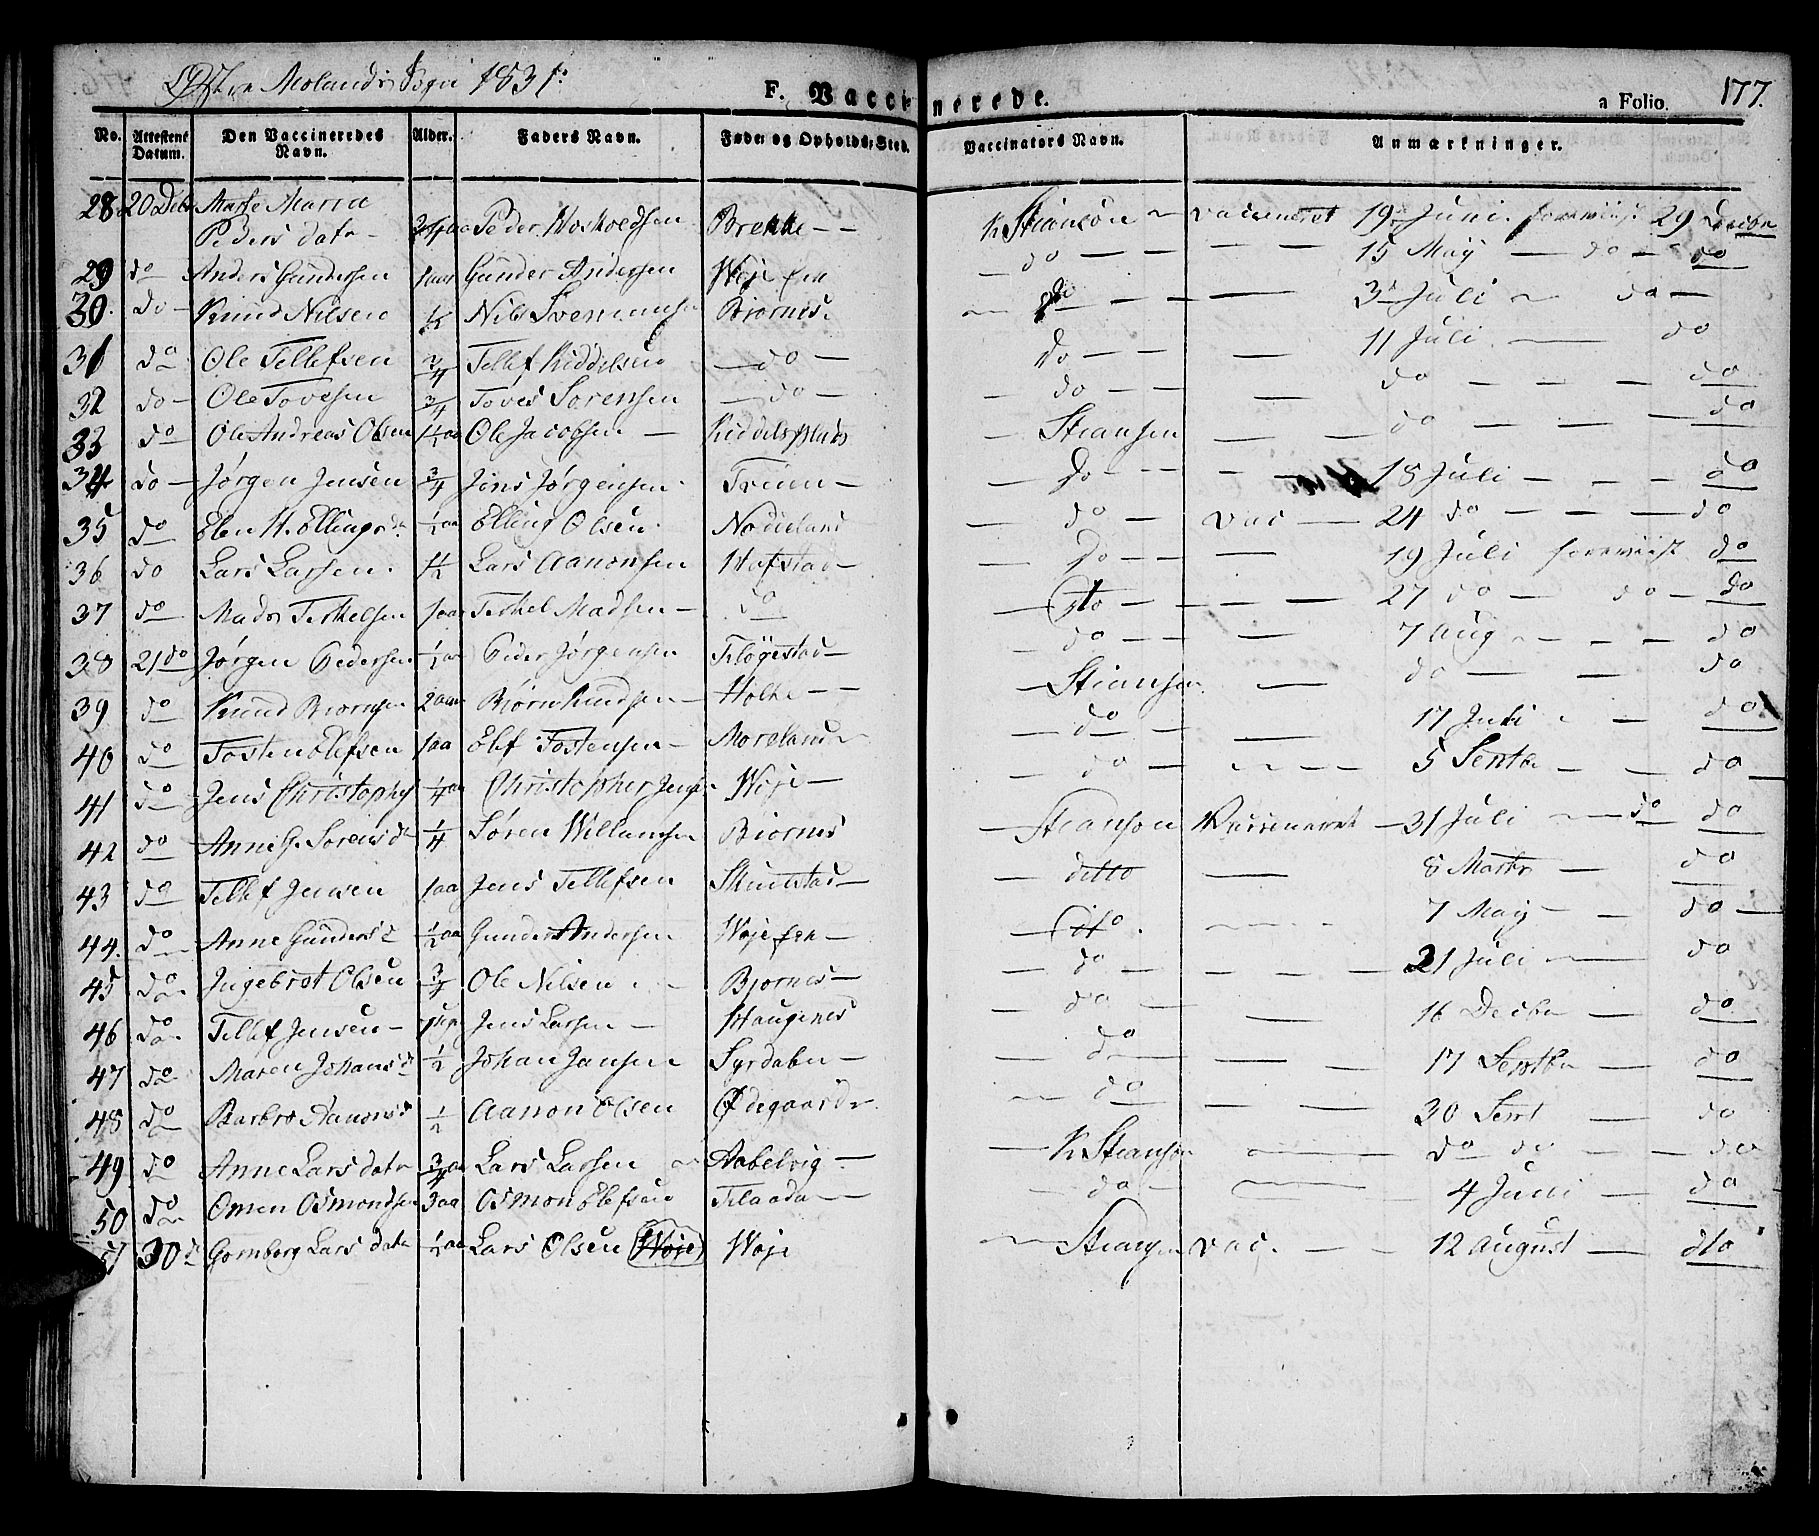 Østre Molands Sogn 1831.
F. Vaccinerede.
a Folio. 177.
No. Attestens Datum. Den Vaccineredes Navn. Alder. Faders Navn. Føde og Opholds-Sted. Vaccinators Navn. Anmærkninger.
28 20 Debr Marthe Maria
Peders datr Peder Brekke — — K Stiansøn vaccineret 19 Juni forreviist 29 Decbr
29 do Anders Gundersen 1 aar Gunder Andersen Wøje — do — — 15 May — do — do
30. do Knud Nilsen 1/2 Nils Biørnes — do — — 3 Juli do
31 do Ole Tellefsen 3/4 Tellef Kiddelsen — do — Do — — 11 Juli — do
32 do Ole Tovesen 3/4 Toves Sørensen — do — do — — do — do
33 do Ole Andreas Olsen 1 1/2 aar Ole Jacobsen Kiddelsplads Stiansen — do — do
34 do Jørgen Jensen 3/4 Jens Jørgensen Do — — 18 Juli — do
35 do Elen M. Ellingsdr 1/2 aa Elling Olsen Nødeland do — vac — 24 do — do
36 do Lars Larsen 1 1/2 Lars Aanonsen Hafstad — Do — — 19 Juli forreviist do
37 do Mads Terkelsen 1 aa Terkel Madsen — do dto — 27 do — do — do
38 21 do Jørgen Pedersen 1/2 aa Peder Jørgensen Fløgestad — do — — 7 Aug — do
39 do Knud Biørnsen 2 aar Biørn Knudsen — Holte — — Stiansen — do — do
40 do Tosten Elefsen 1 aa Elef Tostensen — Moreland do — 17 Juli — do
41 do Jens Christophs 1/4 aa Christopher Jens Wøje — do — 5 Septbr — do
42 do Anne G. Sørens dr 1/4 Søren Willumsen Biørnes Stiansøn Vaccineret — 31 Juli — do do
43 do Tellef Jensen 1 aa Jens Tellefsen ditto — 8 Martr — do
44. do Anne Gunders d 1/2 aa Gunder Andersen Wøje — dito. 7 May — do —
45 do Ingebret Olsen 3/4 Ole Nilsen Bjørnes — do — 21 Juli — do
46 do Tellef Jensen — Jens Larsen — Haugenes do — 16 Decbr — do
47 do Maren Johans d 1/2 Johan Jansen Syrdalen — do 17 Septbr do
48 do Barbro Aanonsdr 1/2 Aanon Olsen Ødegaard do — 30 Sept — do
49 do Anne Lars datr 3/4 Lars Larsen Aabelvig — K Stiansøn do do — do
50 do Omen Osmondsen 3 aa Osmon Elefsen Flaada — — do — 4 Juni — do
51 30 d Gomborg Lars datr 1/2 aa Lars Olsen Wøje Wøje Stiansen vac. — — 12 August — dto